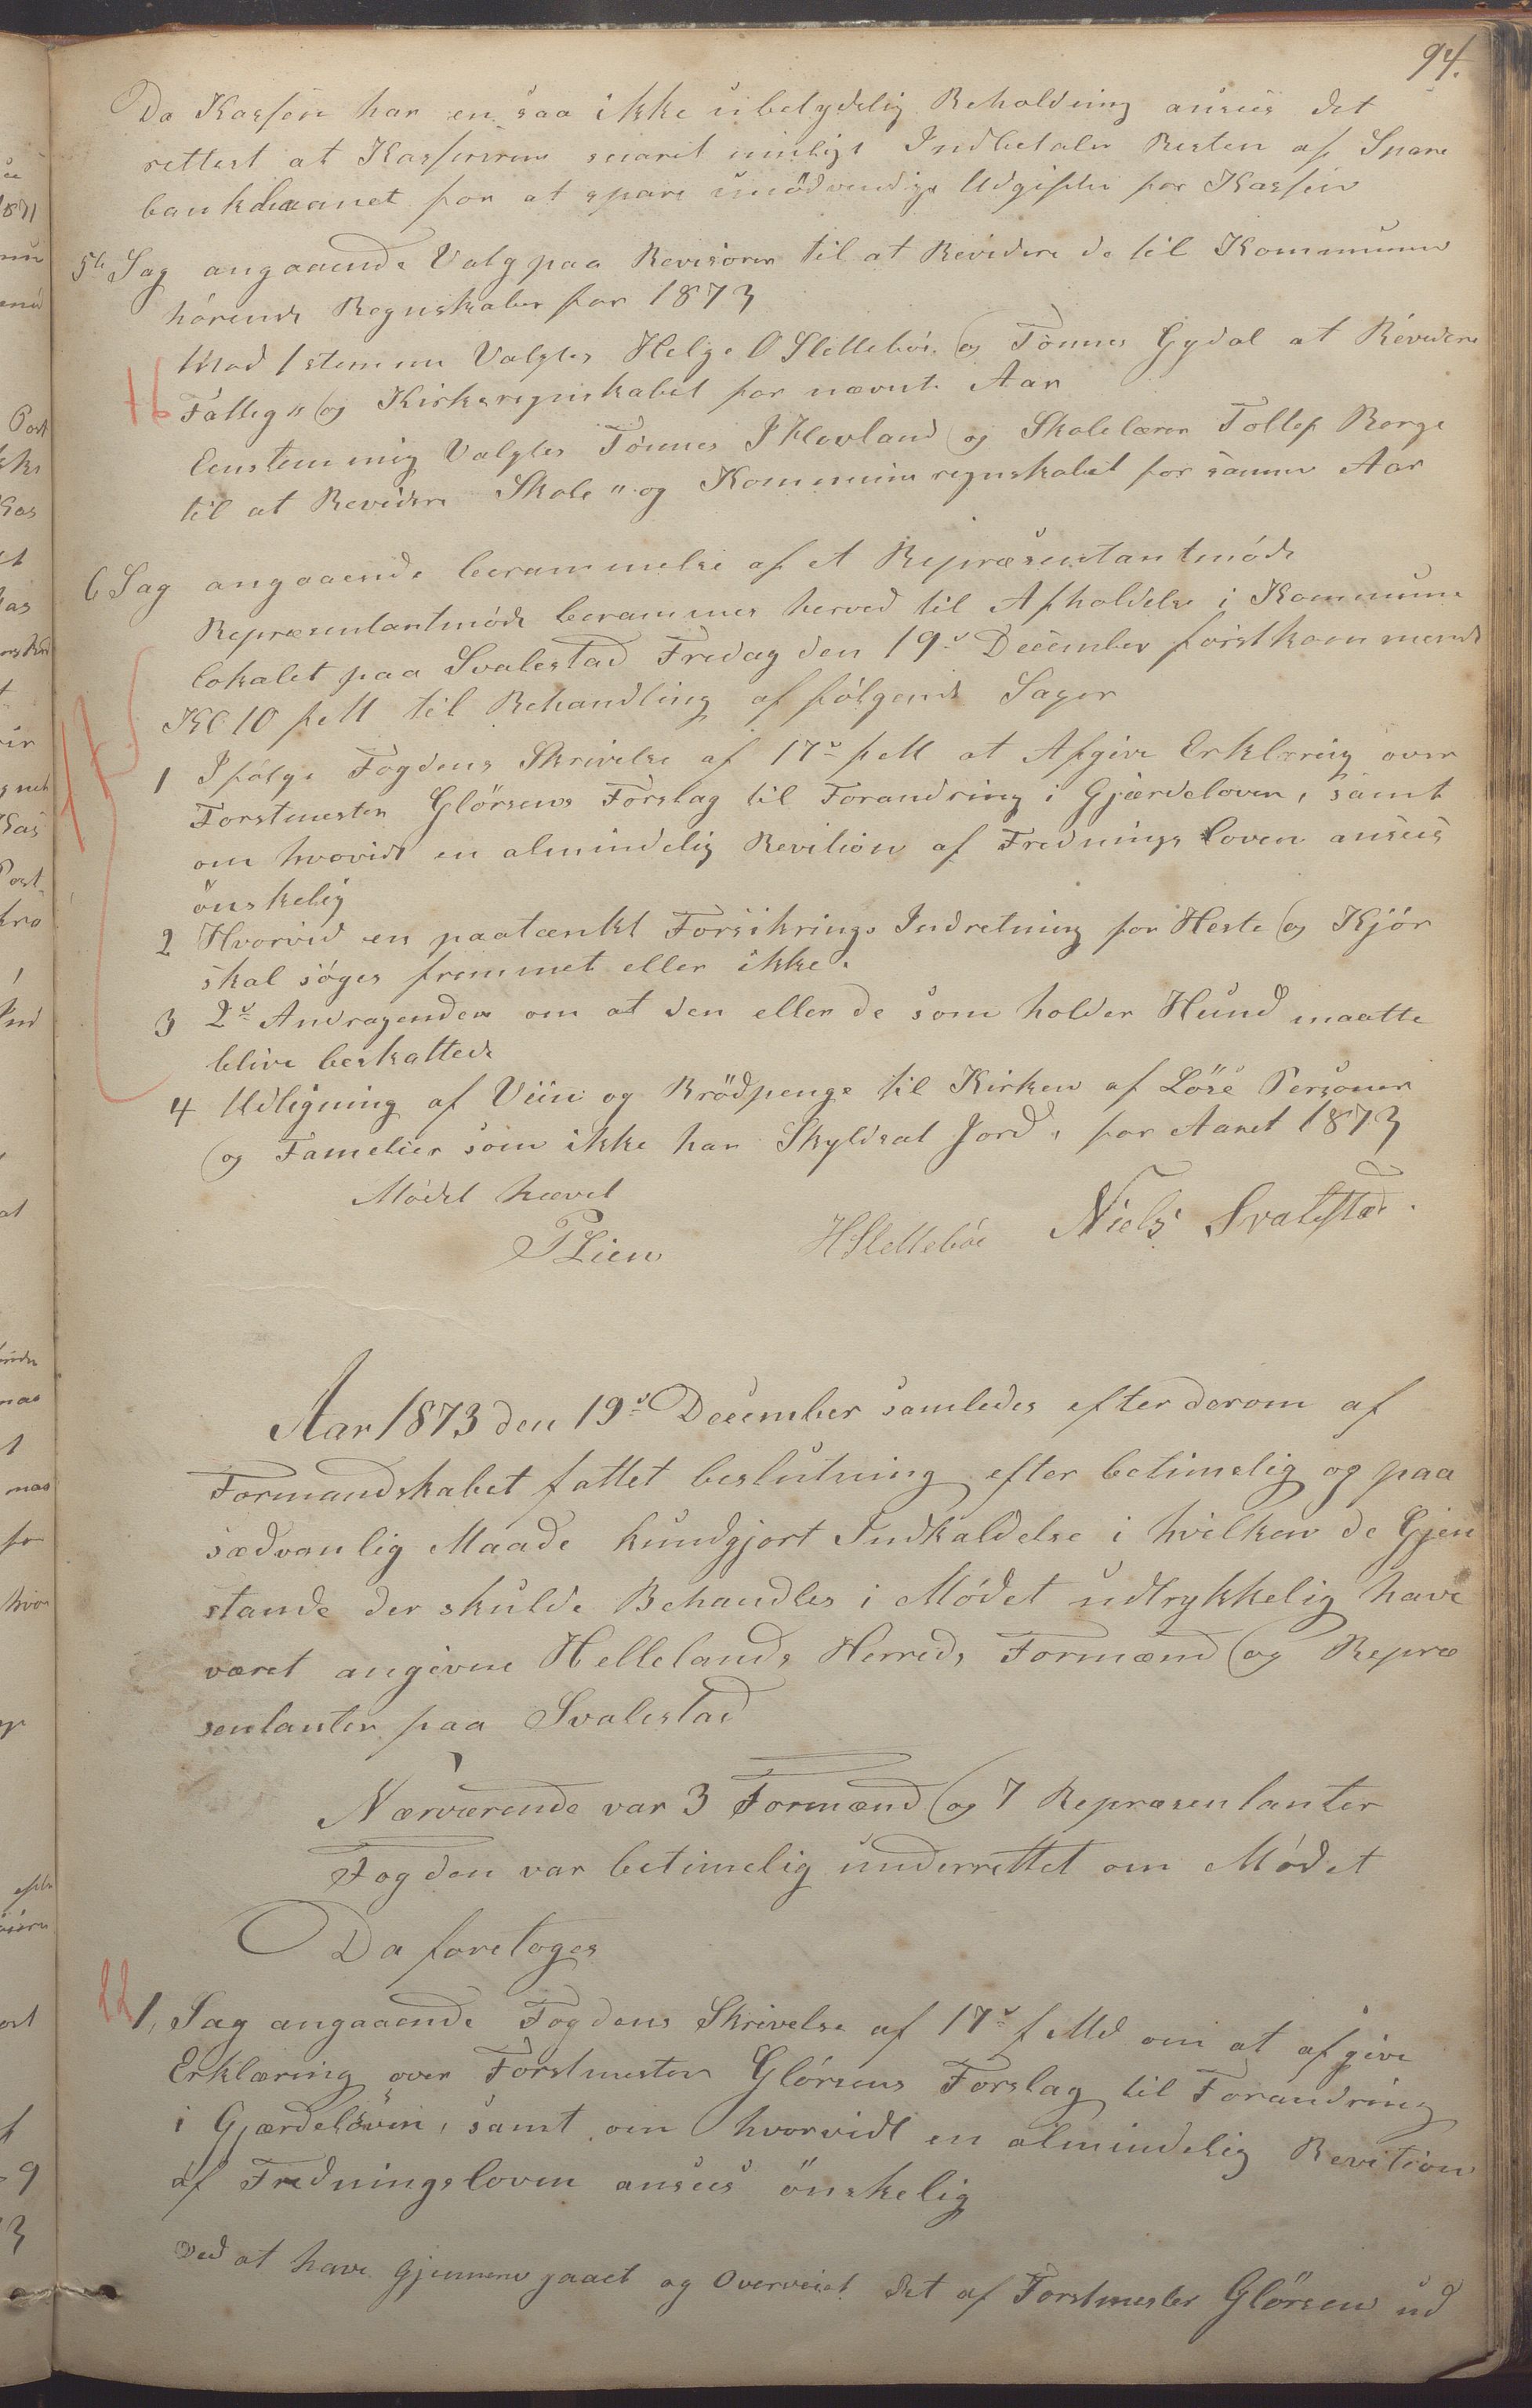 94.
Da Kassen har en saa ikke ubetydelig Beholdning ansees det
rettest at Kassereren snarest muligt Indbetaler Resten af Spare
banklaanet for at spare unödvendige Udgifter for Kassen
5te Sag angaaende Valg paa Revisorer til at Revidere de til Kommunen
hörende Regnskaber for 1873
Mod 1 stemme Valgtes Helge O Sletteböe og Tönnes Gydal at Revidere
Fattig" og Kirkeregnskabet for nævnte Aar
Eenstemmig Valgtes Tönnes J Hovland og Skolelærer Tollef Berge
til at Revidere Skole" og Kommuneregnskabet for samme Aar
6 Sag angaaende berammelse af et Repræsentantmöde
Repræsentantmöde berammes herved til Afholdelse i Kommune
lokalet paa Svalestad Fredag den 19de December förstkommende
Kl. 10 fM til Behandling af fölgende Sager
1 Ifölge Fogdens Skrivelse af 17de f M at Afgive Erklæring over
Forstmester Glörsens Forslag til Forandring i Gjærdeloven, samt
om hvovidt en almindelig Revition af Frednings loven ansees
önskelig
2 Hvorvid en paatænkt Forsikrings Indretning for Heste og Kjör
skal söges fremmet eller ikke.
3 2de Andragender om at den eller de som holder Hund maatte
blive beskattede
4 Udligning af Viin og Brödpenge til Kirken af Löse Personer
og Familier som ikke har Skyldsat Jord, for Aaret 1873
Mödet hævet
P Lien HSletteböe Niels Svalestad.
Aar 1873 den 19de December samledes efter derom af
Formandskabet fattet beslutning efter betimelig og paa
sædvanlig Maade kundgjort Indkaldelse i hvilken de Gjen
stande der skulde Behandles i Mödet udtrykkelig have
været angivne Hellelands Herreds Formænd og Repræ
sentanter paa Svalestad
Nærværende var 3 Formænd og 7 Repræsentanter
Fogden var betimelig underrettet om Mödet
Da foretoges
1, Sag angaaende Fogdens Skrivelse af 17de f Md om at afgive
Erklæring over Forstmester Glörsens Forslag til Forandring
i Gjærdelöven, samt om hvorvidt en almindelig Revition
af Fredningsloven ansees önskelig
Ved at have gjennemgaaet og Overveiet det af Forstmester Glörsen ud